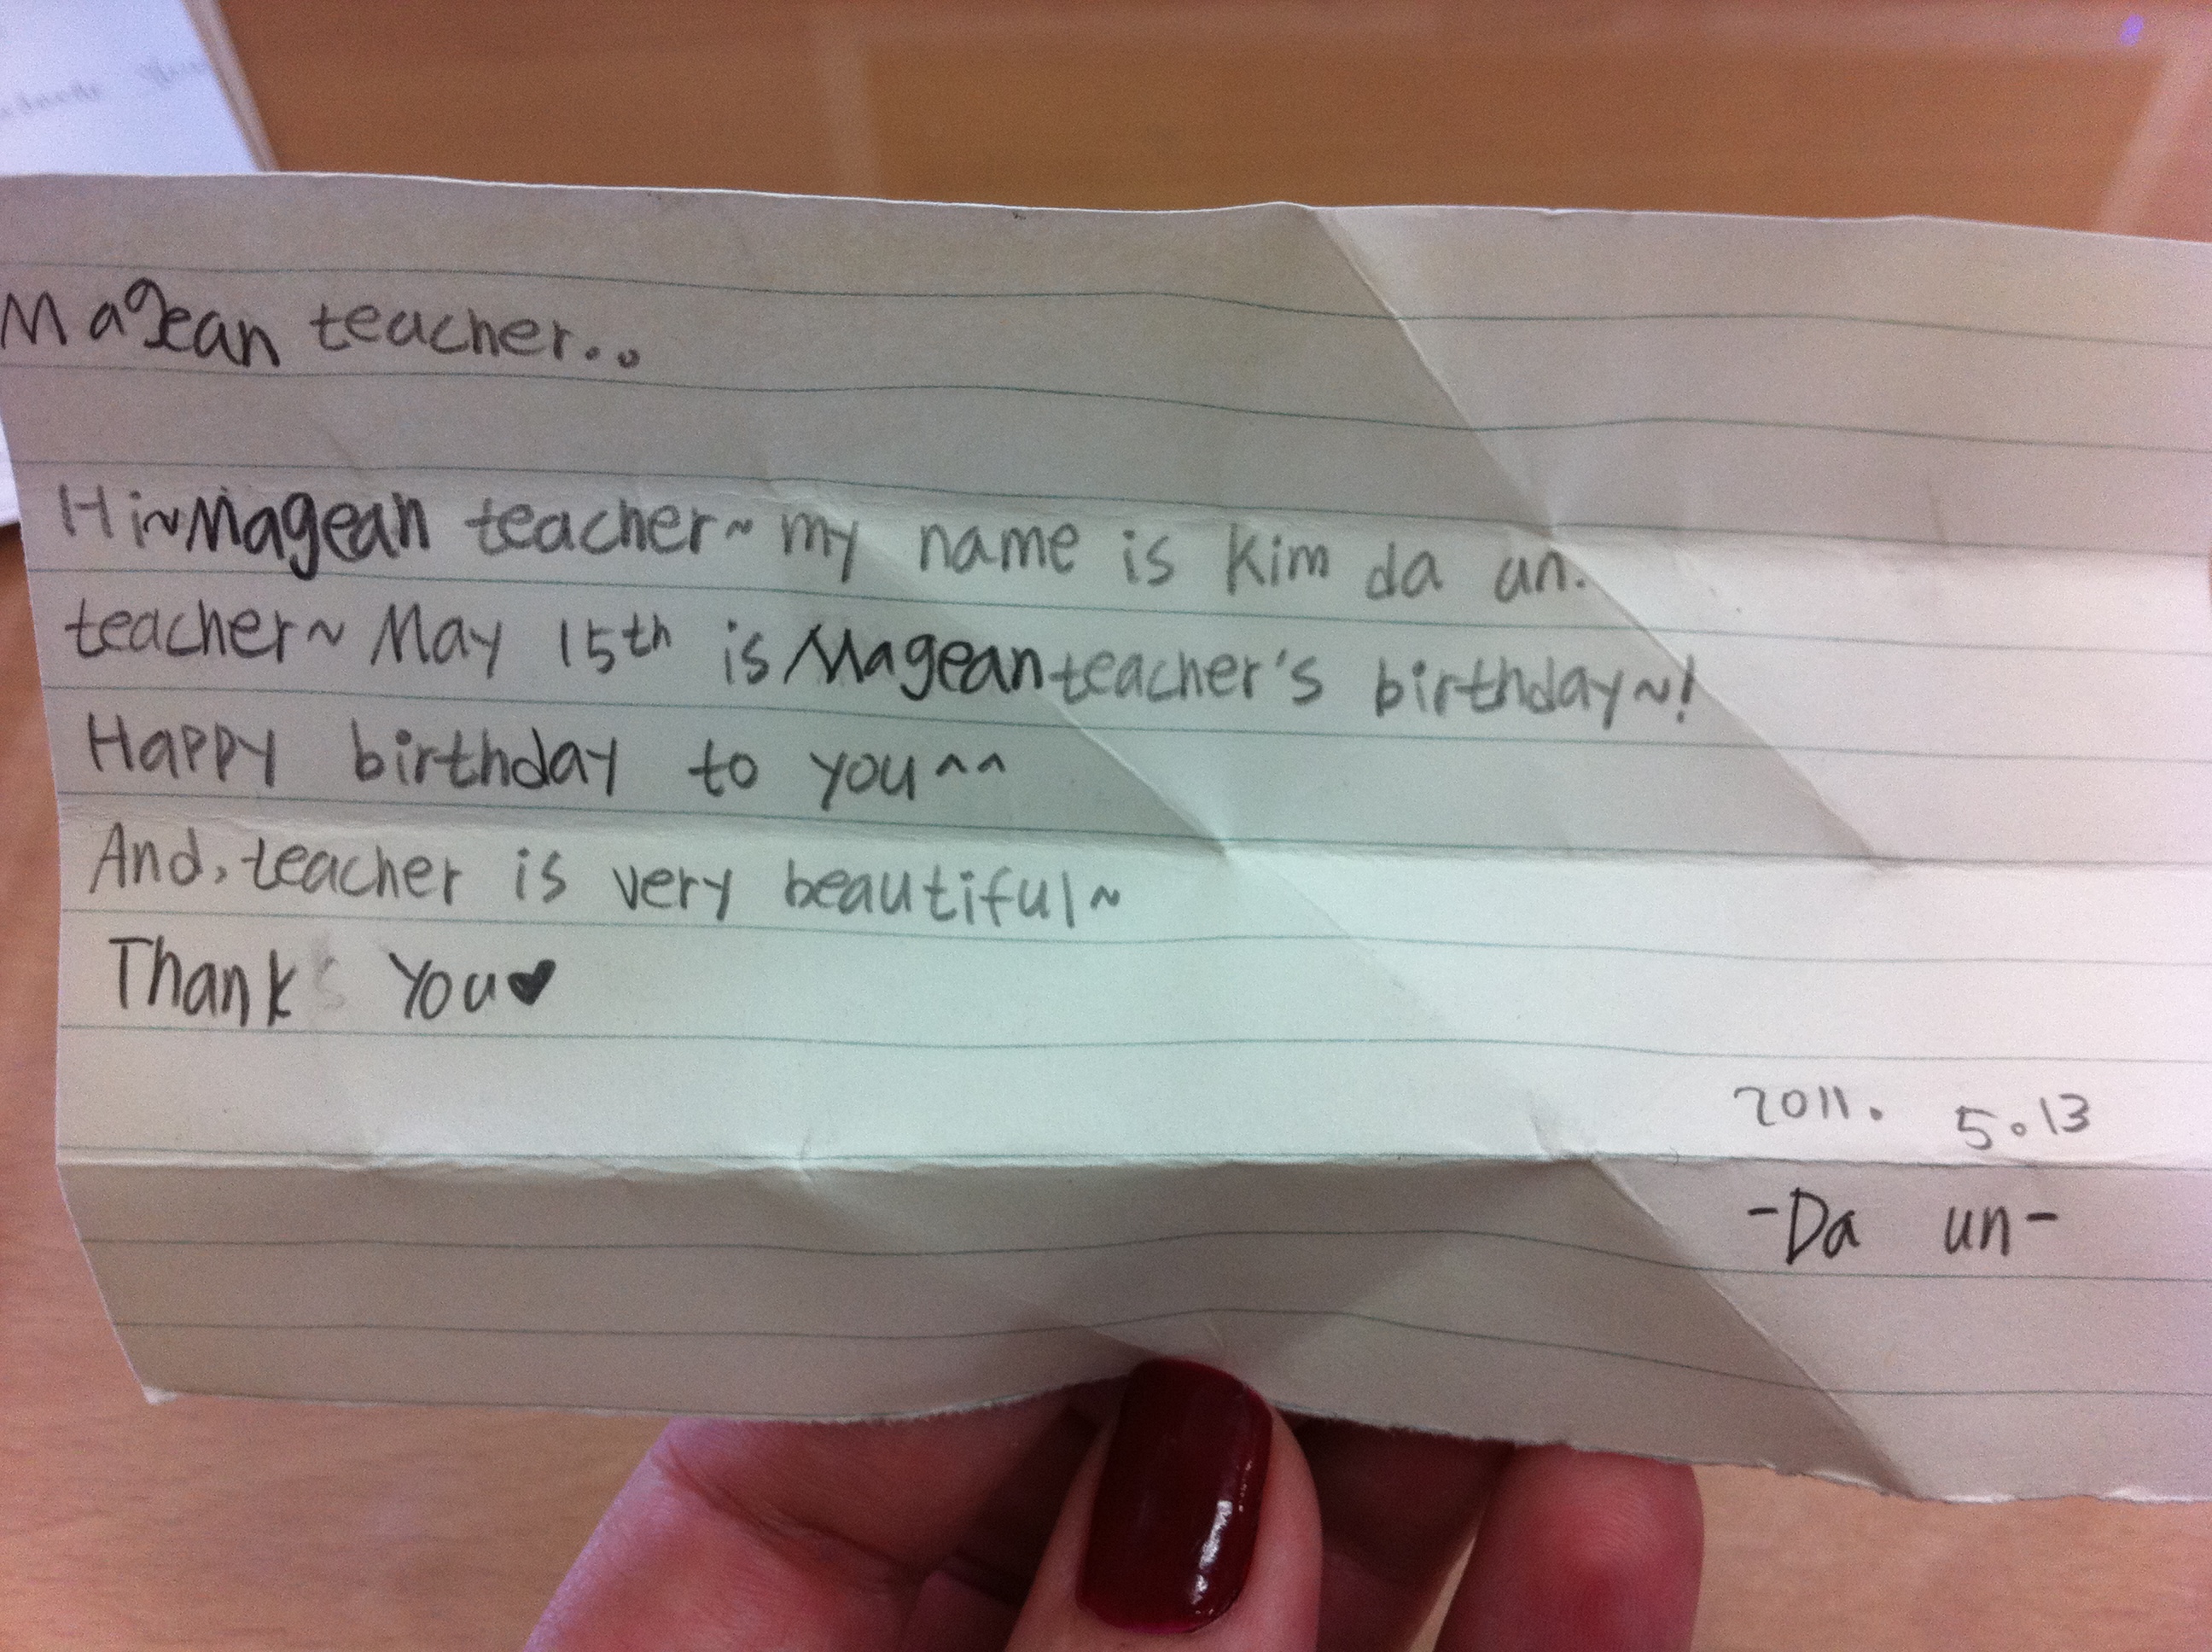 Magean teacher..
Hi~Magean teacher~ my name is kim da un.
teacher~ May 15th is Magean teacher's birthday~!
Happy birthday to you^^
And, teacher is very beautiful~
Thank You♥
2011. 5.13
-Da un-